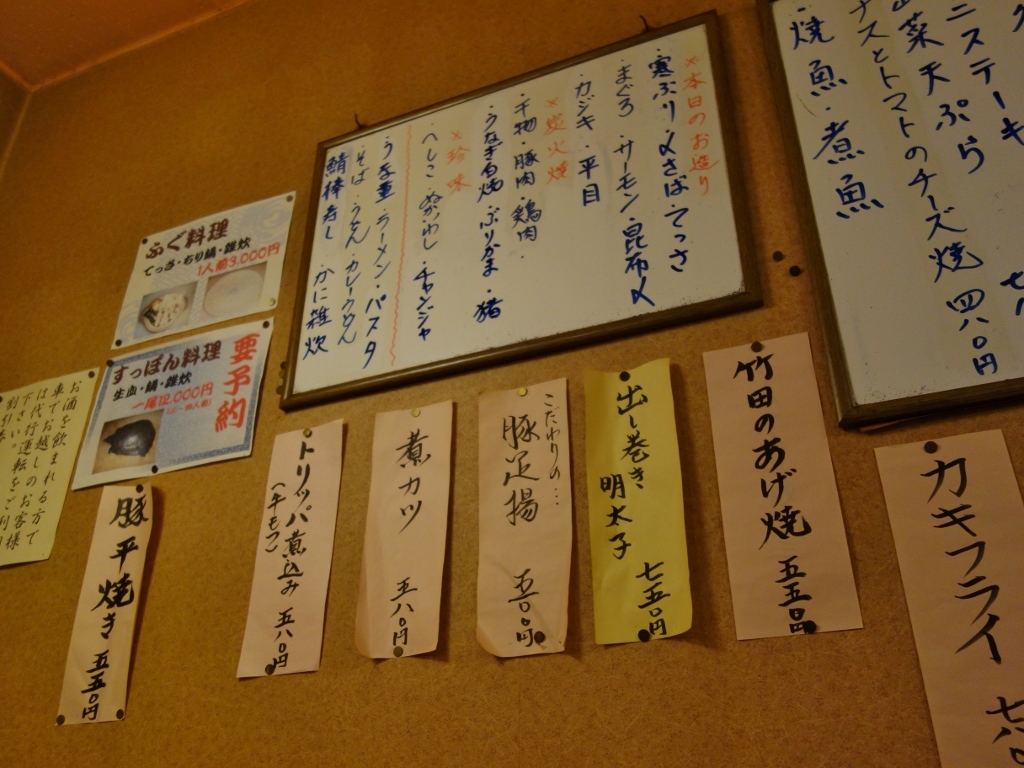 ニステーキ
菜天ぷら
ナスとトマトのチーズ焼 四八〇円
・焼魚・煮魚
※本日のお造り
・寒ぶり・〆さば・てっさ
・まぐろ・サーモン・昆布〆
・カジキ・平目
※炭火焼
・干物・豚肉・鶏肉・
・うなぎ白焼・ぶりかま・猪
※珍味
・へしこ・ぬかいわし・チャンジャ
・うな重・ラーメン・パスタ
・そば・うどん・カレーうどん
鯖棒寿し かに雑炊
ふぐ料理
てっさ・ちり鍋・雑炊
1人前3,000円
要予約
すっぽん料理
生血・鍋・雑炊
一尾12,000円
お酒を飲まれる方で
車でお越しのお客様
は代行運転をご利用
下さい。
カキフライ
竹田のあげ焼 五五〇円
出し巻き
明太子 七五〇円
こだわりの…
豚足揚 五八〇円
煮カツ 五八〇円
トリッパ煮込み
(牛もつ) 五八〇円
豚平焼き 五五〇円